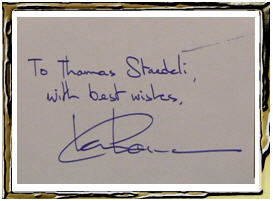 To Thomas Staedeli,
with best wishes,